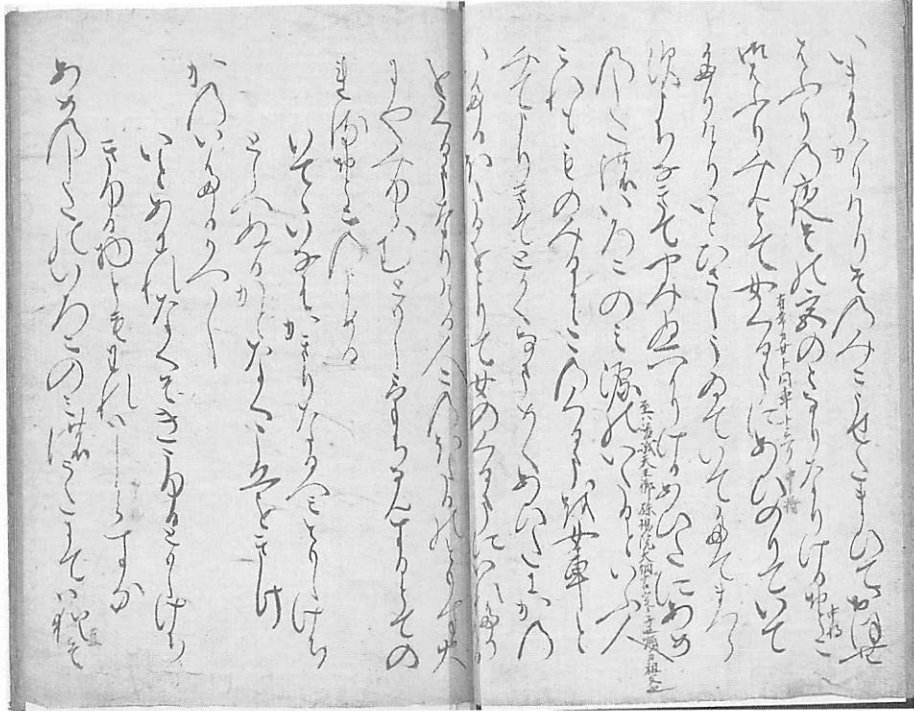 いまそかりけりそのみこうせたまひておほむ
はふりの夜その宮のとなりなりけるおとこ
御はふりみんとて女くるまにあひのりていて
たりけりいとひさしうゐていてたてまつら
すうちなきてやみぬへかりけるあひたにあめ
のしたのいろこのみ源のいたるといふ人
これもものみるにこのくるまを女車と
みてよりきてとかくなまめくあひたにかの
いたるほたるをとりて女のくるまにいれたりける
をくるまなりける人このほたるのともす火
にやみゆらむともしけちなんするとての
れるおとこのよめる
いてていなはかきりなるへみともしけち
としへぬるかとなくこゑをきけ
かのいたるかへし
いとあはれなくそきこゆるともしけち
きゆる物ともわれはしらすな
あめのしたのいろこのみのうたにてはなほそ